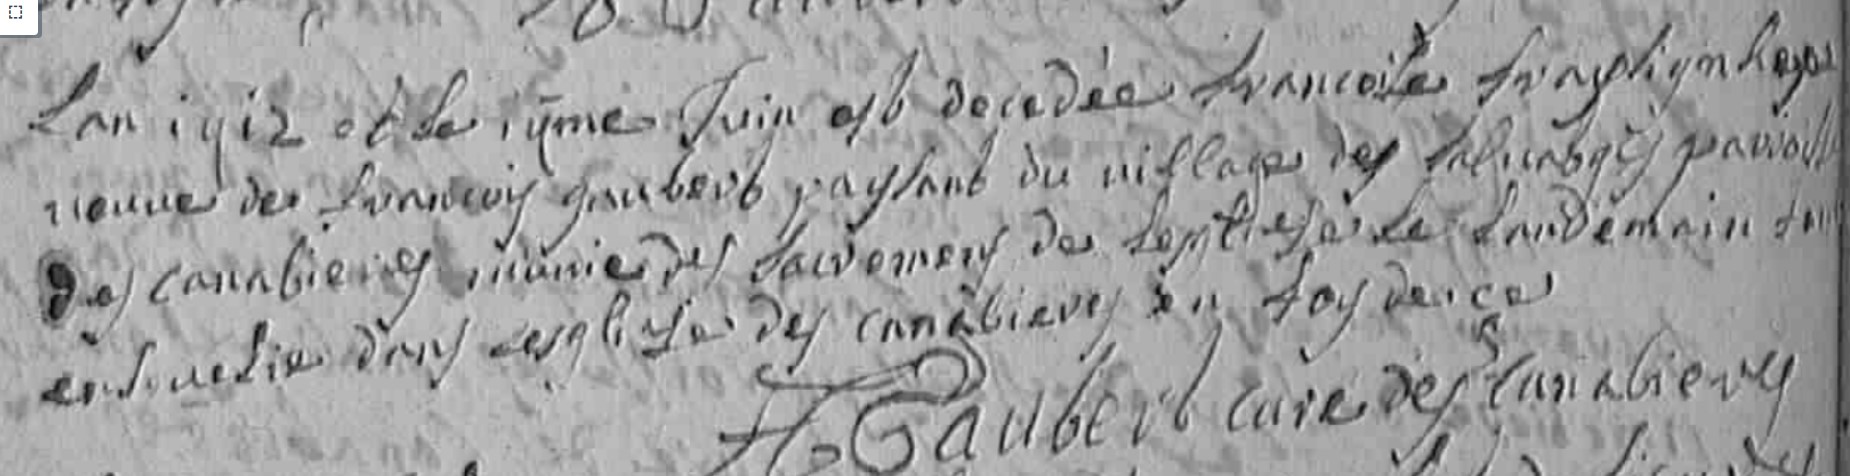 Lan 1712 et le 17me Juin est decedée francoise
veuve de francois gaubert paysant du village des
des canabieres munie des sacremens de leglise et le landemain
ensevelie dans leglise des canabieres en foy de ce
Gaubert cure des Canabieres